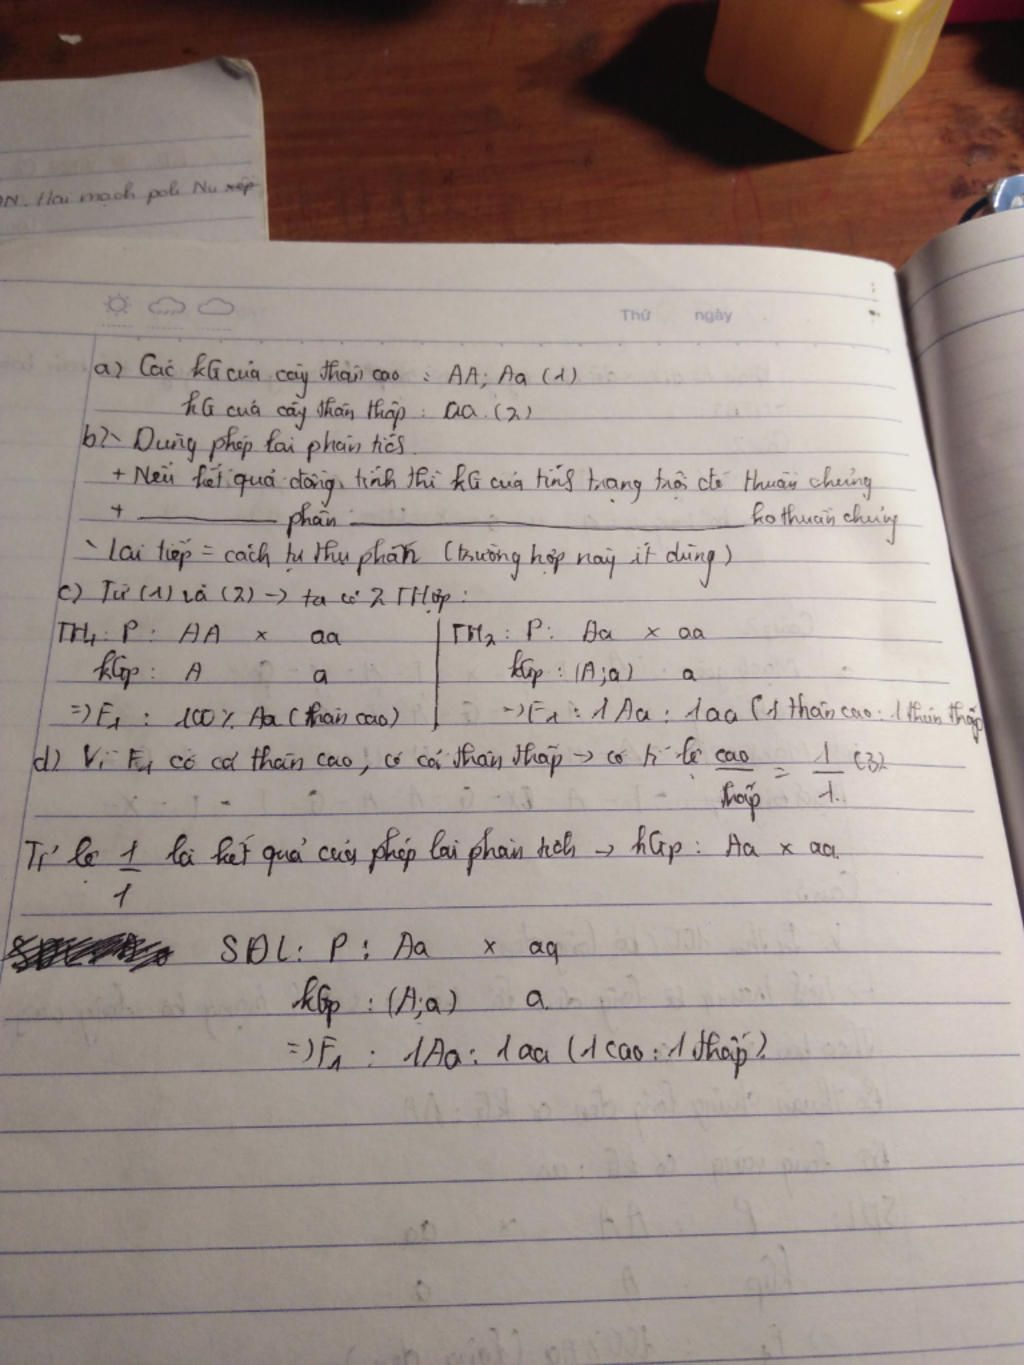 ĐN. Hai mạch poli Nu xếp
Thứ ngày
a) Các kG của cây thân cao : AA; Aa (1)
kG của cây thân thấp : aa. (2)
b) Dùng phép lai phân tích.
+ Nếu kết quả đồng tính thì kG của tính trạng trội đó thuần chủng
+ ——— phân ——— ko thuần chủng
Lai tiếp = cách tự thụ phấn (trường hợp này ít dùng)
c) Từ (1) và (2) → ta có 2 THợp :
TH1 : P : AA × aa
kGp : A a
=> F1 : 100% Aa (thân cao)
TH2 : P : Aa × aa
kGp : (A;a) a
=> F1 : 1Aa : 1aa (1 thân cao : 1 thân thấp
d) Vì F1 có cả thân cao, có cả thân thấp → có tỉ lệ cao/thấp = 1/1 (3)
Tỉ lệ 1/1 là kết quả của phép lai phân tích → kGp : Aa × aa
SĐL : P : Aa × aa
kGp : (A;a) a
=> F1 : 1Aa : 1aa (1 cao : 1 thấp)